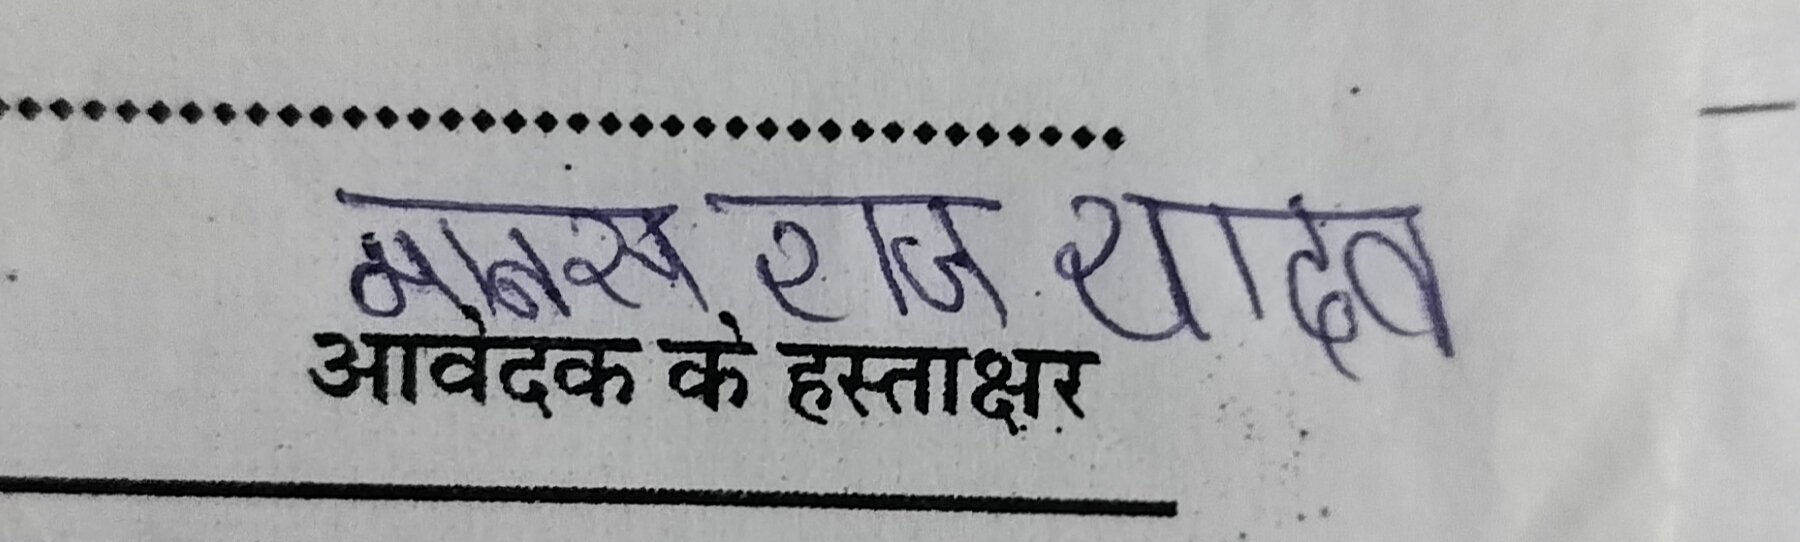 मानस राज यादव
आवेदक के हस्ताक्षर